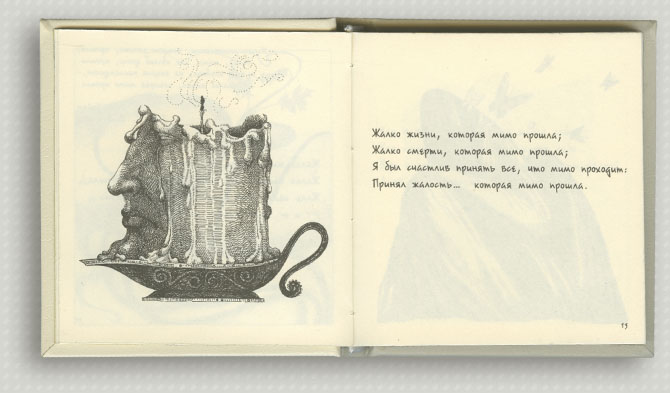 Жалко жизни, которая мимо прошла;
Жалко смерти, которая мимо прошла;
Я был счастлив принять все, что мимо проходит:
Принял жалость... которая мимо прошла.